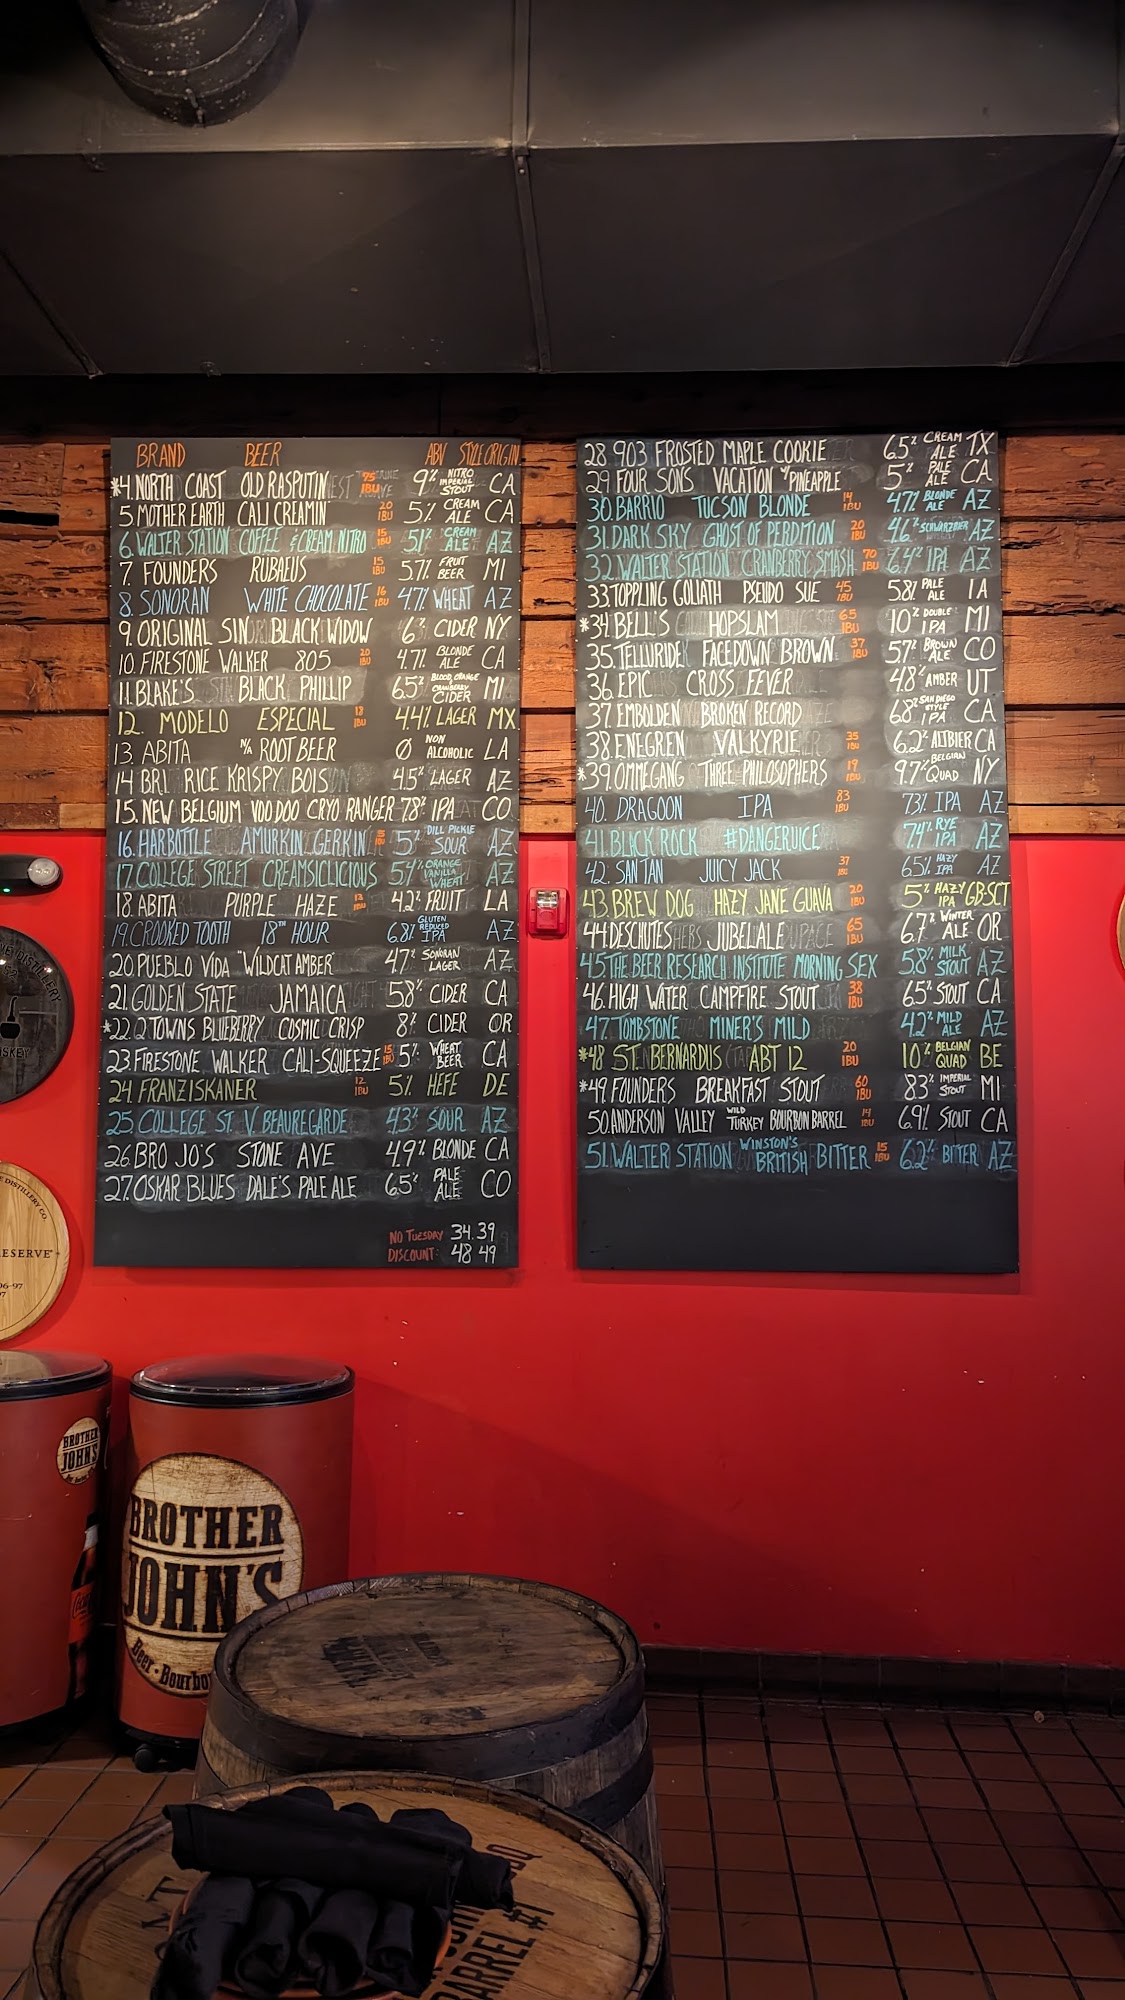 BRAND BEER ABV STYLE ORIGIN
*4. NORTH COAST OLD RASPUTIN 75 IBU 9% NITRO IMPERIAL STOUT CA
5 MOTHER EARTH CALI CREAMIN 20 IBU 5% CREAM ALE CA
6. WALTER STATION COFFEE & CREAM NITRO 15 IBU 5.1% CREAM ALE AZ
7. FOUNDERS RUBAEUS 15 IBU 5.7% FRUIT BEER MI
8. SONORAN WHITE CHOCOLATE 16 IBU 4.7% WHEAT AZ
9. ORIGINAL SIN BLACK WIDOW 6% CIDER NY
10. FIRESTONE WALKER 805 20 IBU 4.7% BLONDE ALE CA
11. BLAKE'S BLACK PHILLIP 6.5% BLOOD ORANGE CRANBERRY CIDER MI
12. MODELO ESPECIAL 18 IBU 4.4% LAGER MX
13. ABITA N/A ROOT BEER Ø NON ALCOHOLIC LA
14 BRL RICE KRISPY BOIS 4.5% LAGER AZ
15. NEW BELGIUM VOO DOO CRYO RANGER 7.8% IPA CO
16. HARBOTTLE AMURKIN GERKIN 15 IBU 5% DILL PICKLE SOUR AZ
17. COLLEGE STREET CREAMSICLICIOUS 5.4% ORANGE VANILLA WHEAT AZ
18. ABITA PURPLE HAZE 13 IBU 4.2% FRUIT LA
19. CROOKED TOOTH 18TH HOUR 6.8% GLUTEN REDUCED IPA AZ
20. PUEBLO VIDA "WILDCAT AMBER" 4.7% SONORAN LAGER AZ
21. GOLDEN STATE JAMAICA 5.8% CIDER CA
*22. 2 TOWNS BLUEBERRY COSMIC CRISP 8% CIDER OR
23. FIRESTONE WALKER CALI-SQUEEZE 15 IBU 5% WHEAT BEER CA
24. FRANZISKANER 12 IBU 5% HEFE DE
25. COLLEGE ST. V. BEAUREGARDE 4.3% SOUR AZ
26 BRO JO'S STONE AVE 4.9% BLONDE CA
27. OSKAR BLUES DALE'S PALE ALE 6.5% PALE ALE CO
NO TUESDAY 34. 39
DISCOUNT: 48 49
28 903 FROSTED MAPLE COOKIE 6.5% CREAM ALE TX
29. FOUR SONS VACATION W/ PINEAPPLE 5% PALE ALE CA
30. BARRIO TUCSON BLONDE 14 IBU 4.7% BLONDE ALE AZ
31. DARK SKY GHOST OF PERDITION 20 IBU 4.6% SCHWARZBIER AZ
32. WALTER STATION CRANBERRY SMASH 70 IBU 6.4% IPA AZ
33. TOPPLING GOLIATH PSEUDO SUE 45 IBU 5.8% PALE ALE IA
*34. BELL'S HOPSLAM 65 IBU 10% DOUBLE IPA MI
35. TELLURIDE FACEDOWN BROWN 37 IBU 5.7% BROWN ALE CO
36. EPIC CROSS FEVER 4.8% AMBER UT
37. EMBOLDEN BROKEN RECORD 6.8% SAN DIEGO STYLE IPA CA
38. ENEGREN VALKYRIE 35 IBU 6.2% ALTBIER CA
*39. OMMEGANG THREE PHILOSOPHERS 19 IBU 9.7% BELGIAN QUAD NY
40. DRAGOON IPA 83 IBU 7.3% IPA AZ
41. BLACK ROCK #DANGERJUICE 7.4% RYE IPA AZ
42. SANTAN JUICY JACK 37 IBU 6.5% HAZY IPA AZ
43. BREW DOG HAZY JANE GUAVA 20 IBU 5% HAZY IPA GBSCT
44 DESCHUTES JUBELALE 65 IBU 6.7% WINTER ALE OR
45. THE BEER RESEARCH INSTITUTE MORNING SEX 5.8% MILK STOUT AZ
46. HIGH WATER CAMPFIRE STOUT 38 IBU 6.5% STOUT CA
47. TOMBSTONE MINER'S MILD 4.2% MILD ALE AZ
*48 ST. BERNARDUS ABT 12 20 IBU 10% BELGIAN QUAD BE
*49. FOUNDERS BREAKFAST STOUT 60 IBU 8.3% IMPERIAL STOUT MI
50. ANDERSON VALLEY WILD TURKEY BOURBON BARREL 14 IBU 6.9% STOUT CA
51. WALTER STATION WINSTON'S BRITISH BITTER 15 IBU 6.2% BITTER AZ
BROTHER
JOHN'S
BROTHER
JOHN'S
Beer · Bourbo
DISTILLERY CO.
RESERVE
06-97
BARREL #1